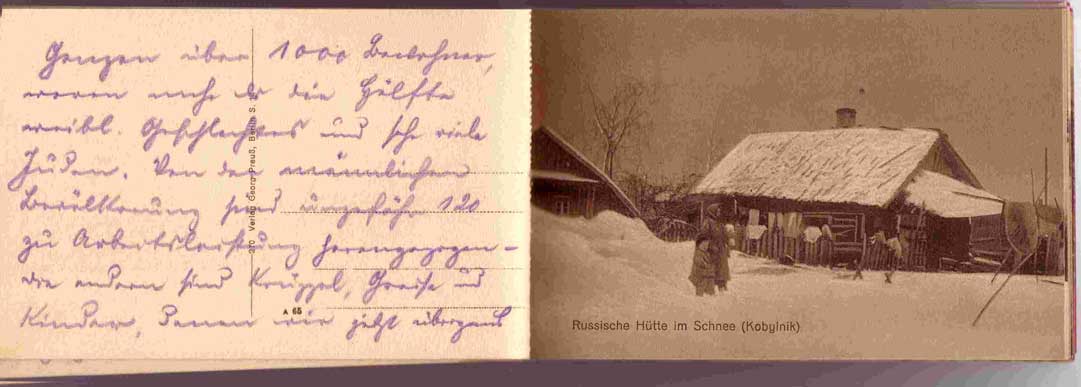 Ganzen über 1000 Bewohner,
waren mehr als die Hälfte
weibl. Geschlechtes und sehr viele
Juden. Von der männlichen
Bevölkerung sind ungefähr 120
zu Arbeitsleistung herangezogen -
die andern sind Krüppel, Greise und
Kinder, denen wir jetzt übrigens
270 Verlag Georg Preuß, Berlin S.
A 65
Russische Hütte im Schnee (Kobylnik)